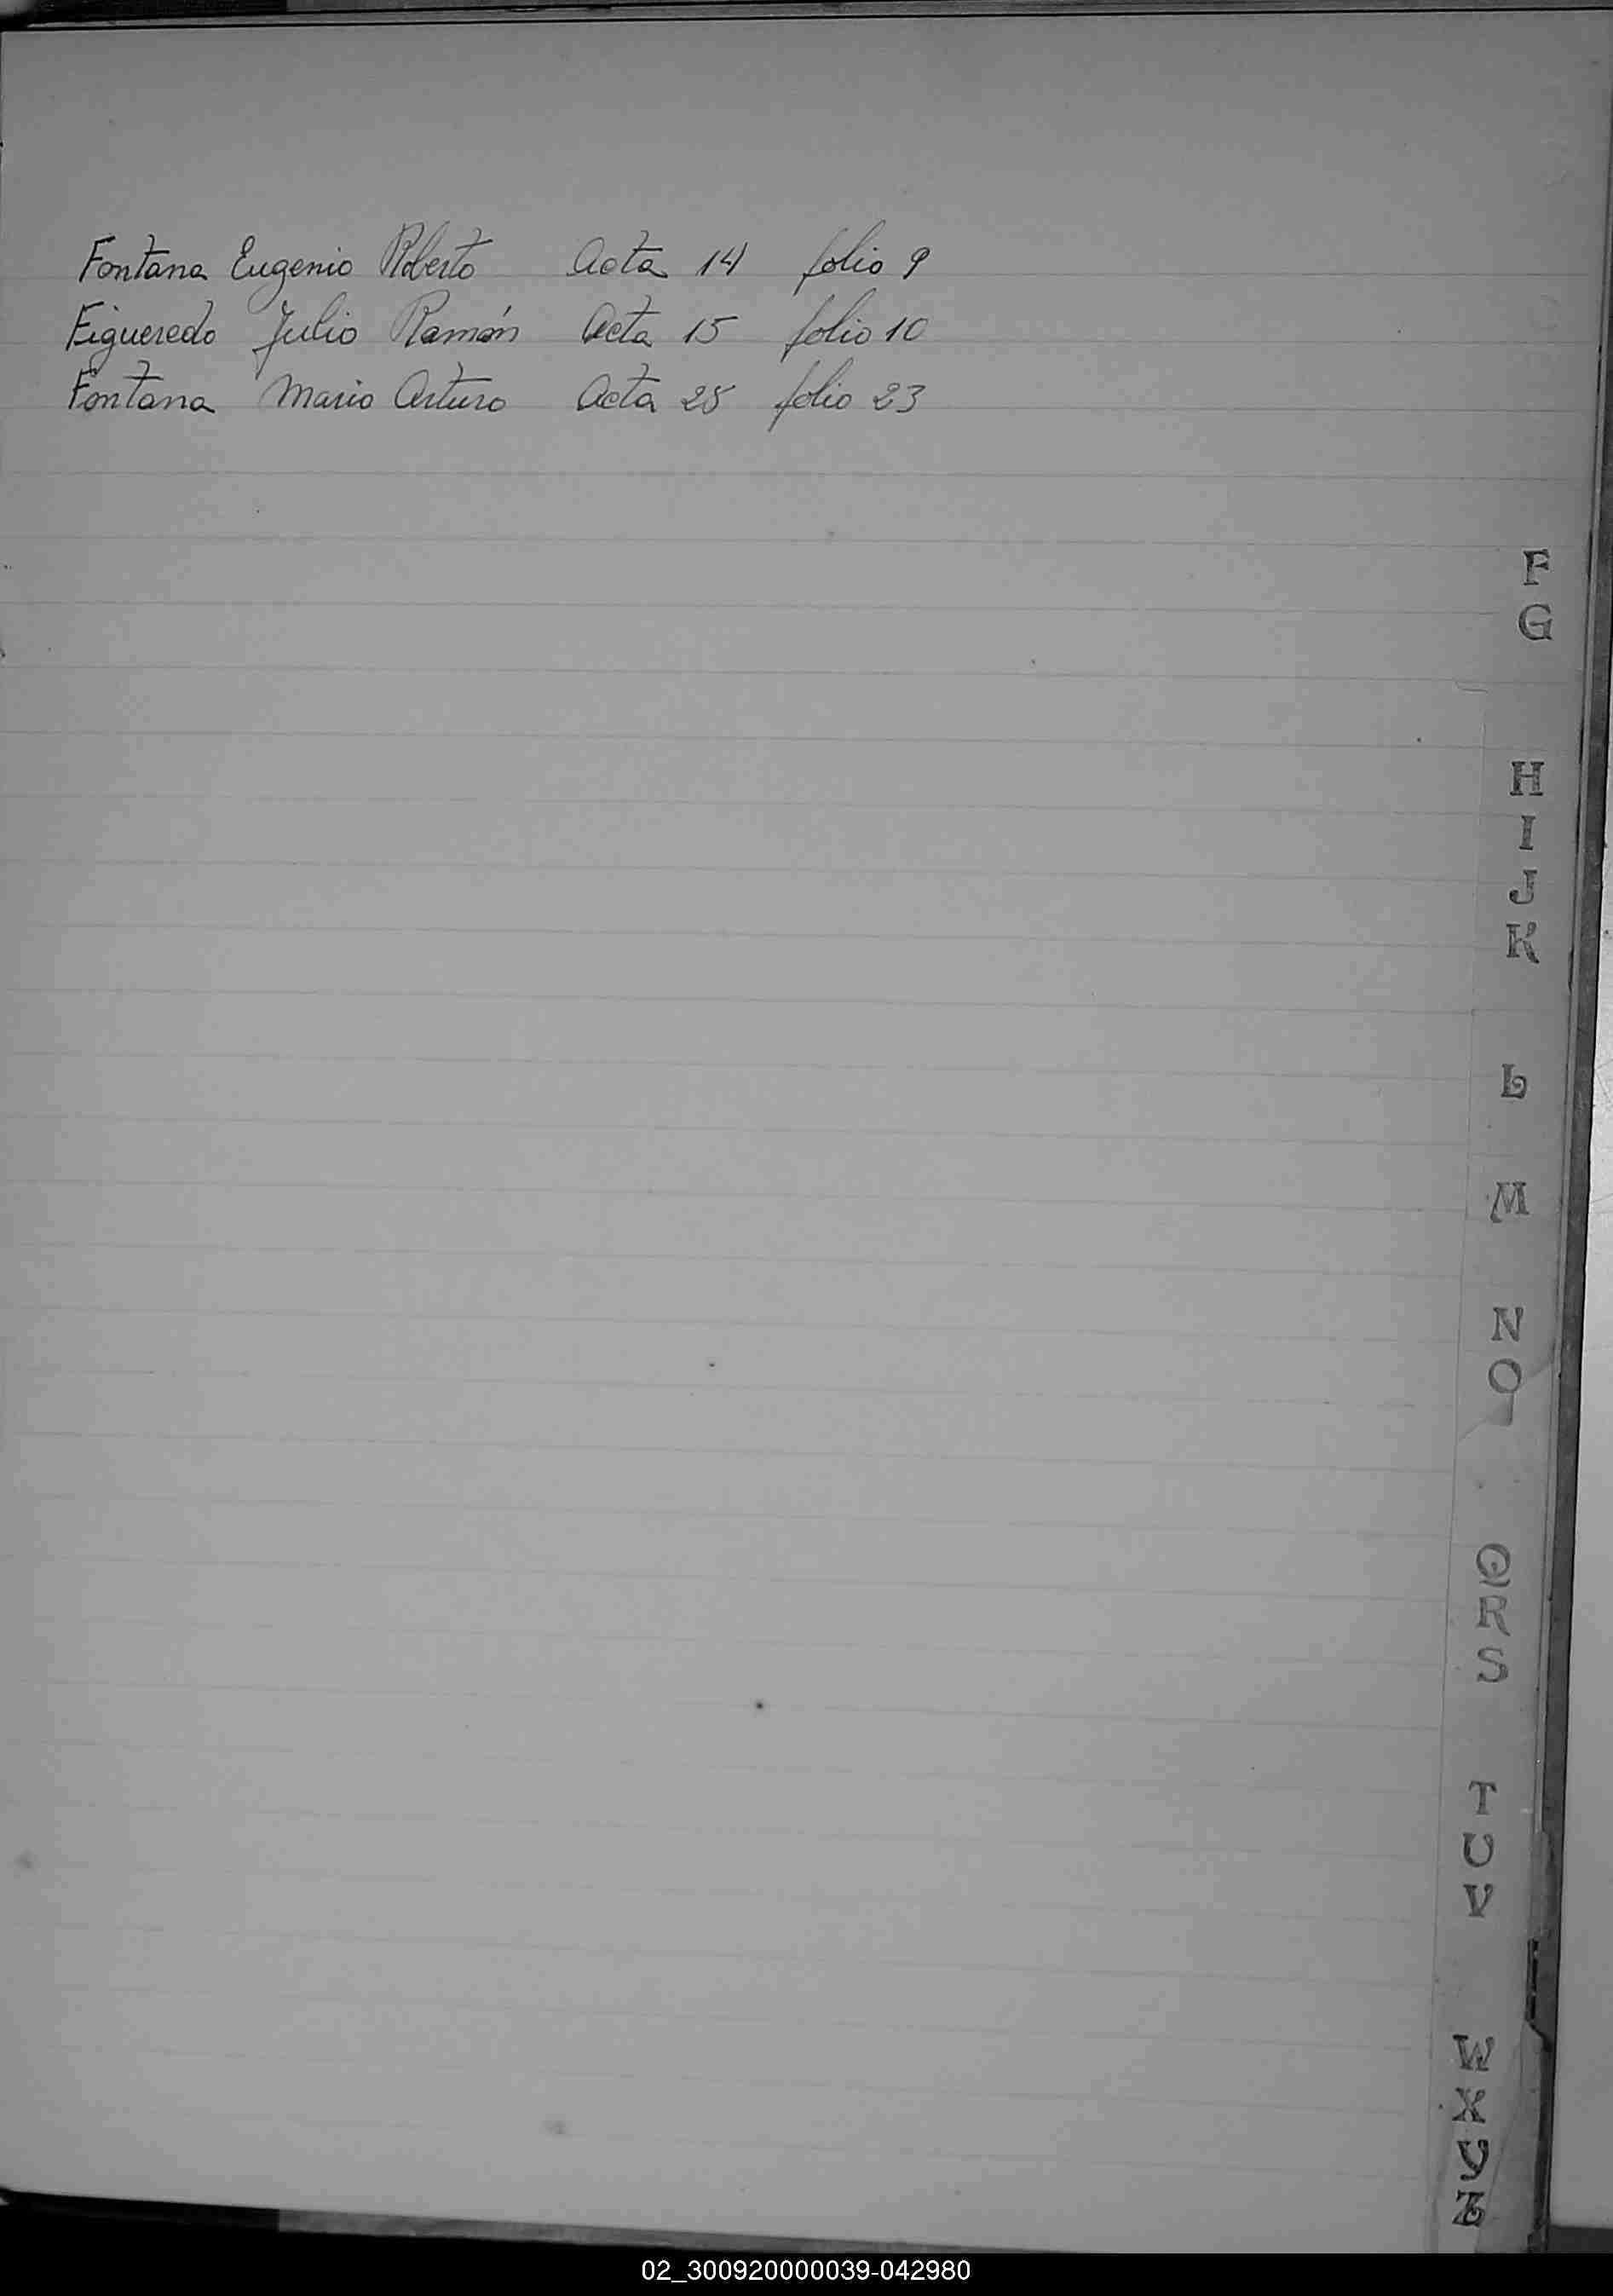 Fontana Eugenio Roberto Acta 14 folio 9
Figueredo Julio Ramón Acta 15 folio 10
Fontana Mario Arturo Acta 25 folio 23
F
G
H
I
J
K
L
M
N
O
Q
R
S
T
U
V
W
X
Y
Z
02_300920000039-042980